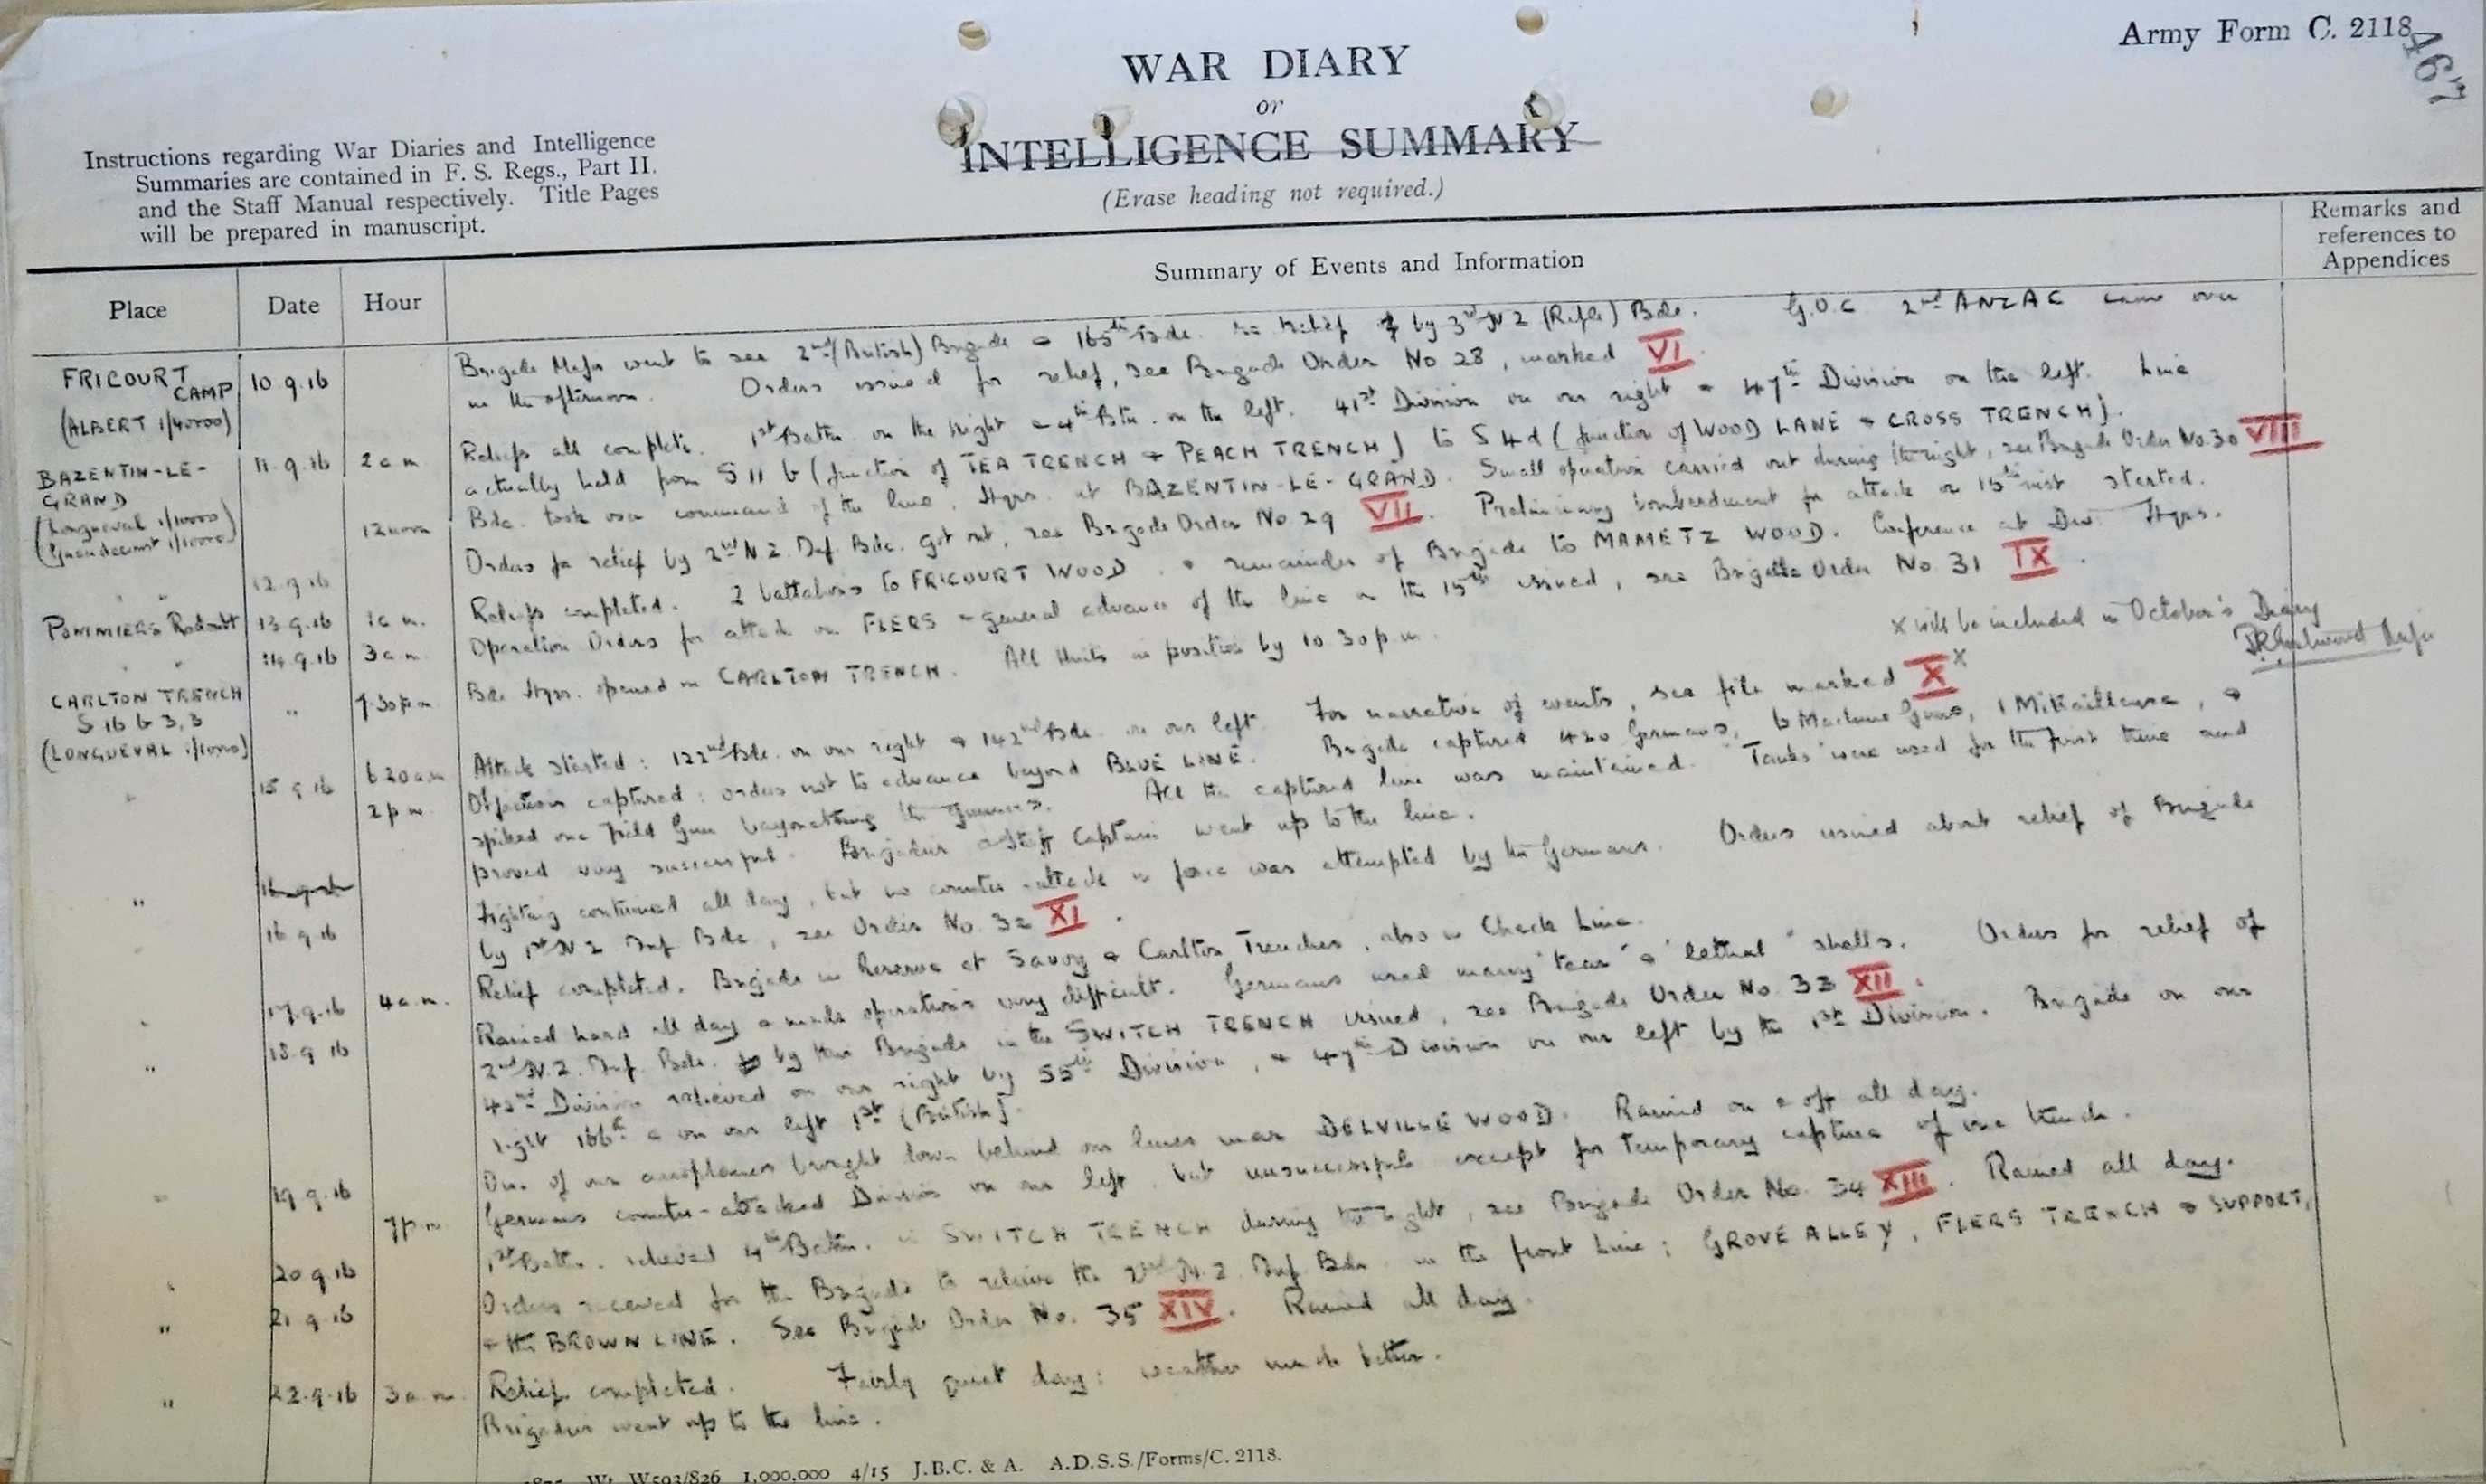 Army Form C. 2118
467
WAR DIARY
or
INTELLIGENCE SUMMARY
(Erase heading not required.)
Instructions regarding War Diaries and Intelligence
Summaries are contained in F. S. Regs., Part II.
and the Staff Manual respectively. Title Pages
will be prepared in manuscript.
Place
Date
Hour
Summary of Events and Information
Remarks and
references to
Appendices
FRICOURT
CAMP
(ALBERT 1/40000)
10.9.16
Brigade Major went to see 2nd (British) Brigade & 165th Bde. re relief by 3rd N Z (Rifle) Bde. G.O.C 2nd ANZAC came over
in the afternoon. Orders issued for relief, see Brigade Order No 28, marked VI.
BAZENTIN-LE-
GRAND
(Longueval 1/10000)
(Gueudecourt 1/10000)
11.9.16
2 a m
Reliefs all complete. 1st Battn on the right & 4th Btn. on the left. 41st Division on our right & 47th Division on the left. Line
actually held from S 11 b (junction of TEA TRENCH & PEACH TRENCH) to S 4 d (junction of WOOD LANE & CROSS TRENCH).
12 noon
Bde. took over command of the line, Hqrs. at BAZENTIN-LE-GRAND. Small operation carried out during the night, see Brigade Order No. 30 VIII
" "
12.9.16
Orders for relief by 2nd N.Z. Inf. Bde. got out, see Brigade Order No. 29 VII. Preliminary bombardment for attack on 15th inst started.
POMMIERS Redoubt
13.9.16
Reliefs completed. 2 battalions to FRICOURT WOOD & remainder of Brigade to MAMETZ WOOD. Conference at Div. Hqrs.
" "
14.9.16
3 a.m.
Operation Orders for attack on FLERS & general advance of the line on the 15th issued, see Brigade Order No. 31 IX.
x will be included in October's Diary
CARLTON TRENCH
S 16 b 3,3
(LONGUEVAL 1/10000)
"
7.30 p m
Bde Hqrs. opened in CARLTON TRENCH. All Units in position by 10 30 p.m.
"
15 9 16
6 20 a.m
Attack started: 122nd Bde. on our right & 142nd Bde. on our left. For narrative of events, see file marked X x
2 p m.
Objectives captured: orders not to advance beyond BLUE LINE. Brigade captured 420 Germans, 6 Machine Guns, 1 Mitrailleuse, &
spiked one Field Gun bayonetting the gunners. All the captured line was maintained. "Tanks" were used for the first time and
proved very successful. Brigadier & Staff Captain went up to the line.
"
16.9.16
Fighting continued all day, but no counter-attack in force was attempted by the Germans. Orders issued about relief of Brigade
by 1st N Z Inf. Bde, see Order No. 32 XI.
17.9.16
4 a.m.
Relief completed. Brigade in Reserve at Savoy & Carlton Trenches, also in Check Line.
"
18.9 16
Rained hard all day & made operations very difficult. Germans used many "tear" & "lethal" shells. Orders for relief of
2nd N.Z. Inf. Bde. by this Brigade in the SWITCH TRENCH issued, see Brigade Order No. 33 XII.
42nd Division relieved on our right by 55th Division, & 47th Division on our left by the 1st Division. Brigade on our
right 166th & on our left 1st (British).
"
19.9.16
One of our aeroplanes brought down behind our lines near DELVILLE WOOD. Rained on & off all day.
7 p m.
Germans counter-attacked Division on our left, but unsuccessful except for temporary capture of one trench.
"
20 9.16
1st Battn. relieved 4th Battn. in SWITCH TRENCH during the night, see Brigade Order No. 34 XIII. Rained all day.
"
21 9 16
Orders received for the Brigade to relieve the 2nd N.Z. Inf Bde. in the front line; GROVE ALLEY, FLERS TRENCH & SUPPORT,
& the BROWN LINE. See Brigade Order No. 35 XIV. Rained all day.
"
22.9.16
3 a.m.
Relief completed. Fairly quiet day: weather much better.
Brigadier went up to the line.
Wt W593/826 1,000,000 4/15 J.B.C. & A. A.D.S.S./Forms/C. 2118.